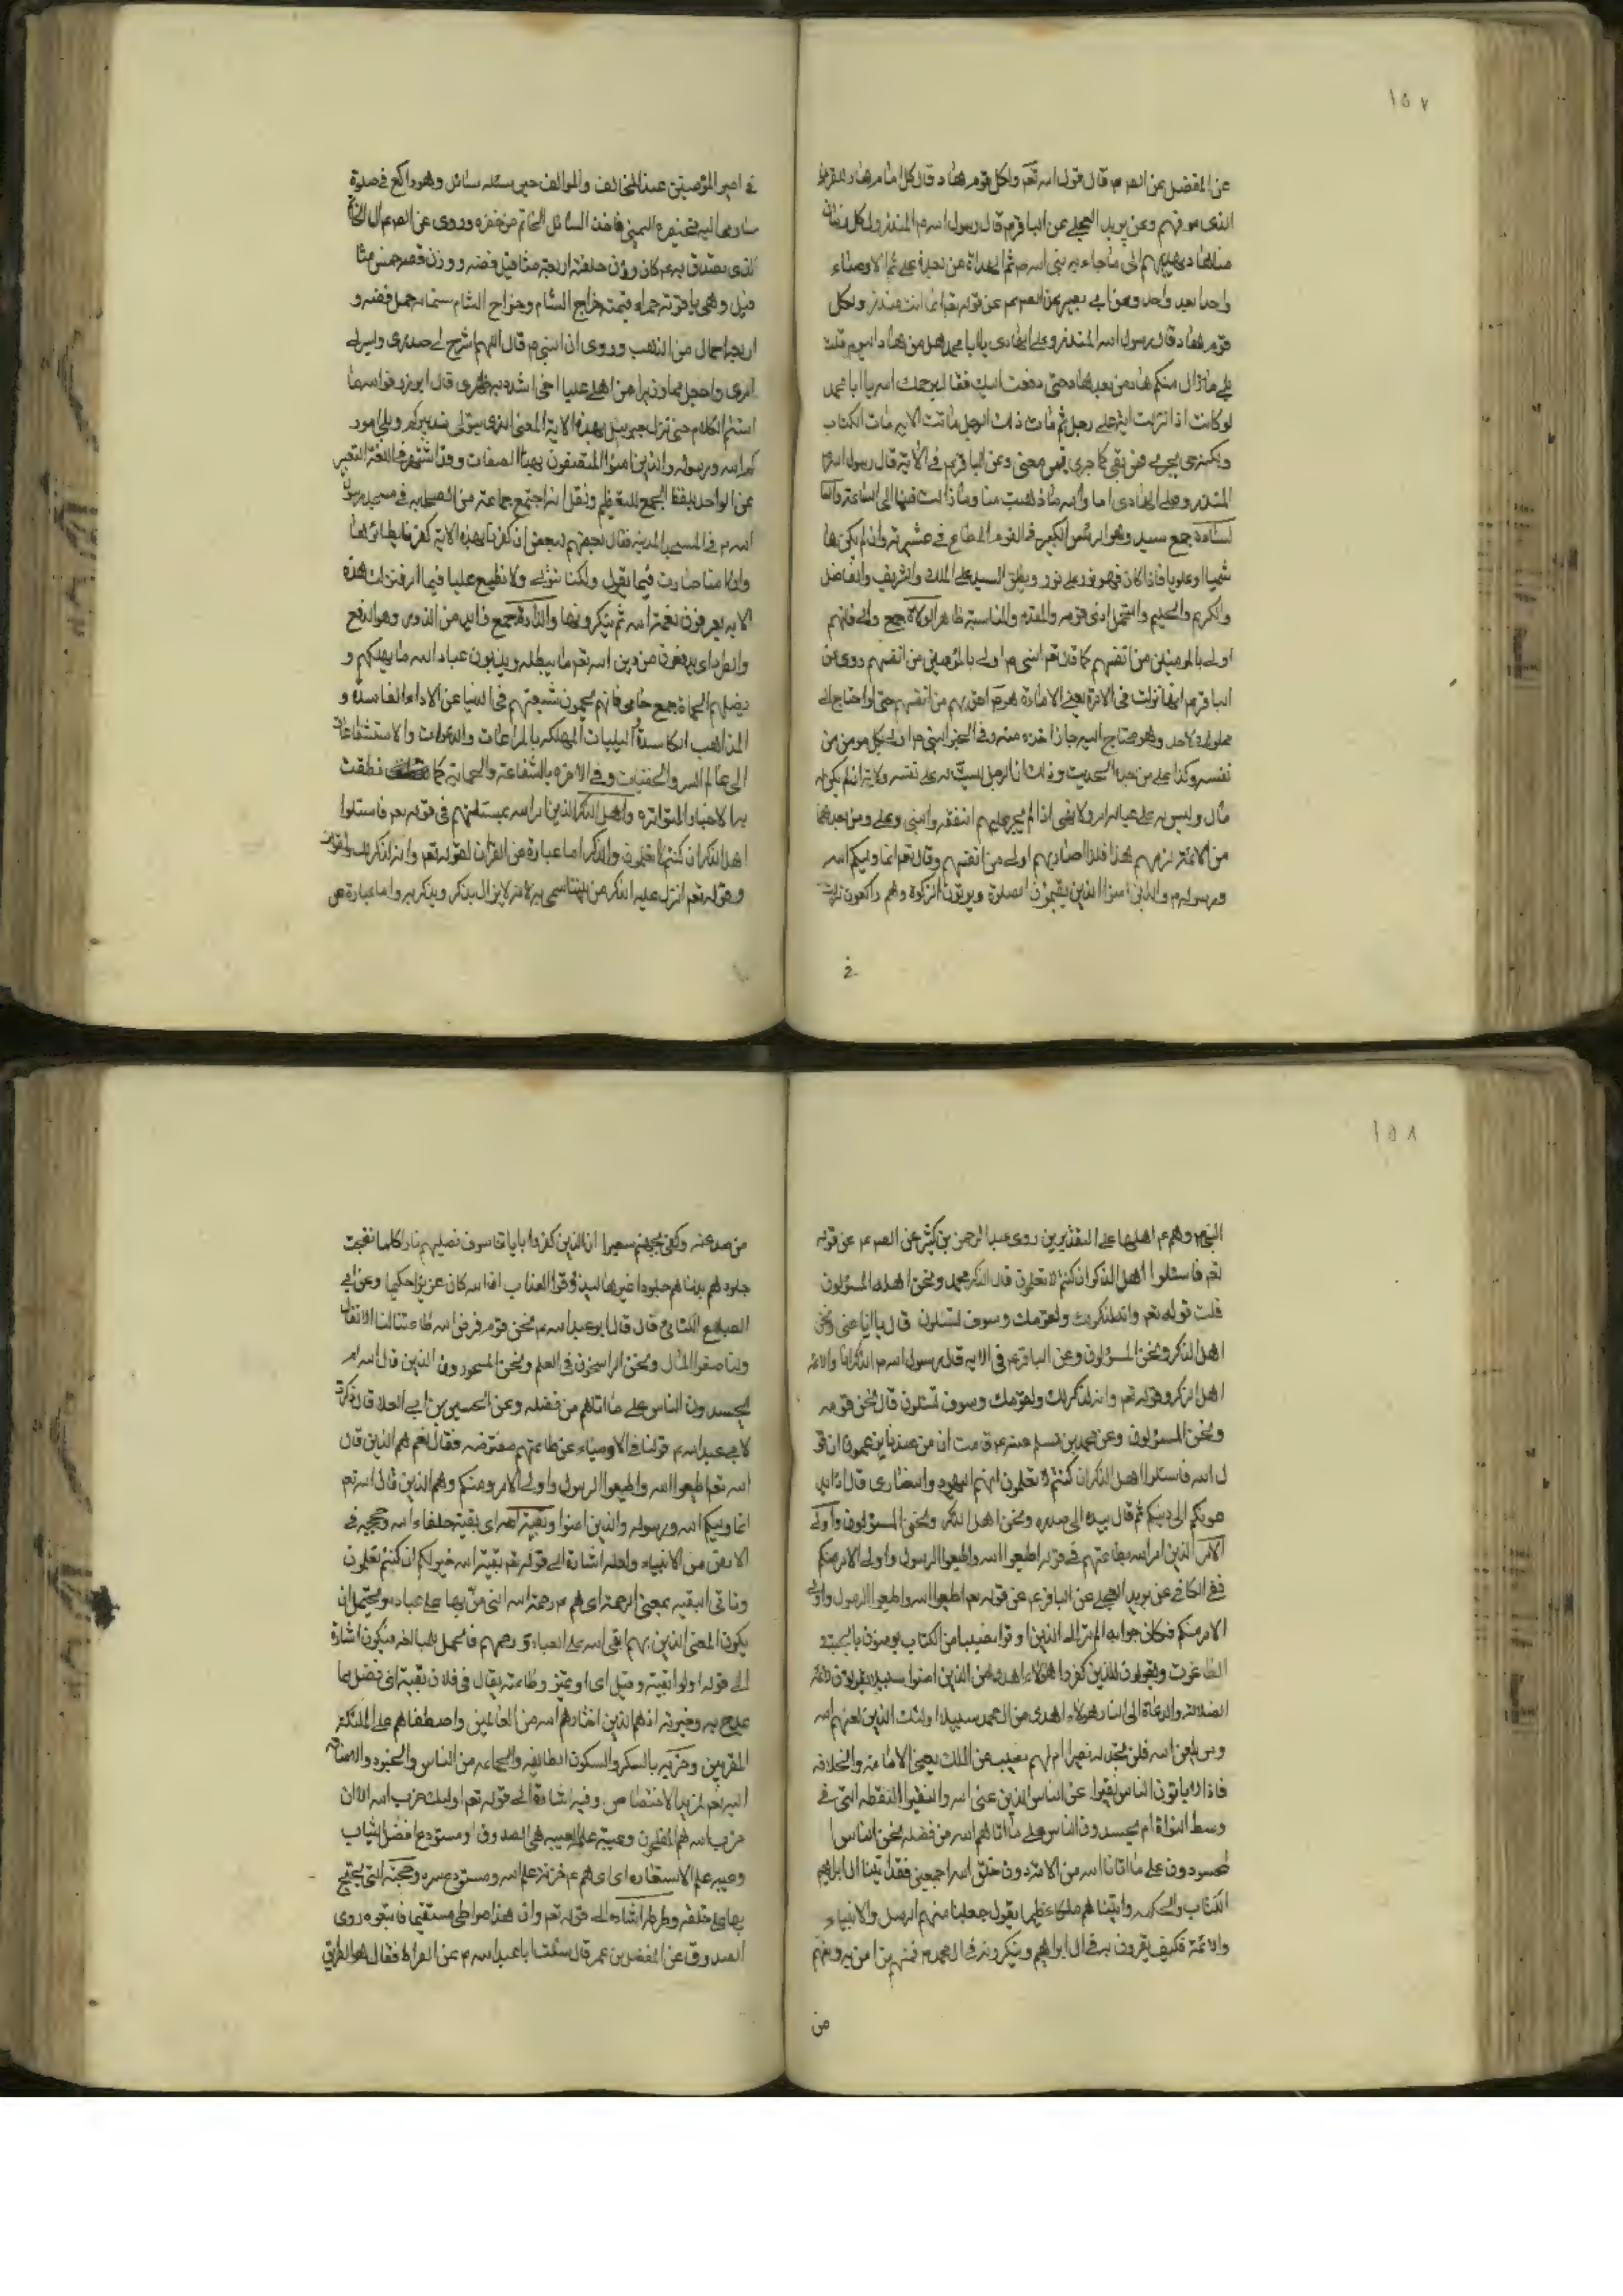 ١٥٧
عن المفضل عن الصم قال قول اسه تعم ولكل قوم هاد قال كل امام هاد للقرن
الذى هو فيهم وعن بريد العجلى عن الباقر م قال رسول اسم المنذر ولكل زمان
منا هاد يهديهم الى ما جاء به نبى اسه م ثم الهداة من بعده على ثم الاوصياء
واحدا بعد واحد وعن ابى بصير عن الصم عن قوله تعم انما انت منذر ولكل
قوم هاد قال رسول اسه المنذر وعلى الهادى يا ابا محمد هل من هاد اليوم قلت
بلى ما زال منكم هاد من بعد هاد حتى دفعت اليك فقال يرحمك اسه يا ابا محمد
لو كانت اذا نزلت اية على رجل ثم مات ذلك الرجل ماتت الايه مات الكتاب
ولكنه حى يجرى فيمن بقى كما جرى فيمن مضى وعن الباقر م فى الاية قال رسول اسه
المنذر وعلى الهادى اما واسه ما ذهبت منا وما زالت فينا الى الساعة والسا
السادة جمع سيد وهو الرئيس الكبير فى القوم المطاع فى عشيرته وان لم يكن ها
شميا او علويا فاذا كان فهو نور على نور ويطلق السيد على الملك والشريف والفاضل
والكريم والحليم والمتحمل اذى قومه والمقدم والمناسبة ظاهر الولاة جمع والى فانهم
اولى بالمومنين من انفسهم كما قال تعم النبى م اولى بالمؤمنين من انفسهم روى عن
الباقر م انها نزلت فى الامرة يعنى الامارة هو م احق بهم من انفسهم حتى لو احتاج الى
مملوك لاحد وهو محتاج اليه جاز اخذه منه وفى الخبر النبى م اولى بكل مومن من
نفسه وكذا على من بعده الحديث وذلك ان الرجل ليست له على نفسه ولاية اذا لم يكن له
مال وليس له على عياله امر ولا نهى اذا لم يجر عليهم النفقة والنبى وعلى ومن بعدهما
من الائمة لزمهم هذا فلذا صاروا بهم اولى من انفسهم وقال تعم انما وليكم اسه
ورسوله م والذين امنوا الذين يقيمون الصلوة ويوتون الزكوة وهم راكعون نزلت
فى
فى امير المؤمنين عند المخالف والموالف حين سئله سائل وهو راكع فى صلوة
فاومى اليه بخنصره اليمنى فاخذ السائل الخاتم من خنصره وروى عن الصم ان الخاتم
الذى تصدق به م كان وزن حلقته اربعة مثاقيل فضه ووزن فصه خمس مثا
قيل وهى ياقوته حمراء قيمته خراج الشام وخراج الشام ستمائه حمل فضه و
اربعه احمال من الذهب وروى ان النبى م قال اللهم اشرح لى صدرى ويسر لى
امرى واجعل لى وزيرا من اهلى عليا اخى اشدد به ظهرى قال ابوذر فواسه ما
استتم الكلام حتى نزل جبرئيل بهذه الاية المعنى الذى يتولى تدبيركم ويلى امور
كم اسه ورسوله والذين امنوا المتصفون بهذا الصفات وقد اشتهر فى اللغة التعبير
عن الواحد بلفظ الجمع للتعظيم ونقل انه اجتمع جماعة من الصحابه فى مسجد رسول
اسه م فى المسجد بالمدينه فقال بعضهم لبعض ان كفرنا بهذه الاية كفرنا بسائرها
ولكنا نتولى ولا نطيع عليا فيما امر فنزلت هذه
الايه يعرفون نعمة اسه ثم ينكرونها والذادة جمع ذائد من الذود وهو الدفع
والطرد اى يدفعون من دين اسه تعم ما يبطله ويذبون عباد اسه ما يهلكهم و
يضلهم الحماة جمع حامى فانهم يحمون شيعتهم فى الدنيا عن الاداء الفاسدة و
المذاهب الكاسدة البليات المهلكه بالمراعات والدعوات والاستشفاعات
الى عالم السر والخفيات وفى الاخره بالشفاعة والحماية كما نطقت
به الاخبار المتواتره واهل الذكر الذين امر اسه بمسئلتهم فى قوله تعم فاسئلوا
اهل الذكر ان كنتم لا تعلمون والذكر اما عبارة عن القران لقوله تعم وانه لذكر لك ولقومك
وقوله تعم انزل عليه الذكر من بيننا سمى به لانه لا يزال يذكر ويذكر به واما عبارة عن
١٥٨
النبى م وهم م اهلها على التقديرين روى عبد الرحمن بن كثير عن الصم م عن قوله
تعم فاسئلوا اهل الذكر ان كنتم لا تعلمون قال الذكر محمد ونحن اهله المسئولون
قلت قوله تعم وانه لذكر لك ولقومك وسوف تسئلون قال ايانا عنى ونحن
اهل الذكر ونحن المسؤلون وعن الباقر م فى الايه قال رسول اسه م الذكر انا والائمة
اهل الذكر وقوله تعم وانه لذكر لك ولقومك وسوف تسئلون قال نحن قومه
ونحن المسؤلون وعن محمد بن مسلم عنه م قلت ان من عندنا يزعمون ان قو
ل اسه فاسئلوا اهل الذكر ان كنتم لا تعلمون انهم اليهود والنصارى قال اذا يد
عونكم الى دينهم ثم قال بيده الى صدره ونحن اهل الذكر ونحن المسؤلون واولى
الامر الذين امر اسه بطاعتهم فى قوله اطيعوا اسه واطيعوا الرسول واولى الامر منكم
ففى الكافى عن بريد العجلى عن الباقر م عن قوله تعم اطيعوا اسه واطيعوا الرسول واولى
الامر منكم فكان جوابه الم تر الى الذين اوتوا نصيبا من الكتاب يومنون بالجبت و
الطاغوت ويقولون للذين كفروا هؤلاء اهدى من الذين امنوا سبيلا يقولون لائمة
الضلالة والدعاة الى النار هولاء اهدى من ال محمد سبيلا اولئك الذين لعنهم اسه
ومن يلعن اسه فلن تجد له نصيرا ام لهم نصيب من الملك يعنى الامامه والخلافه
فاذا لا ياتون الناس نقيرا عن الناس الذين عنى اسه والنقير النقطه التى فى
وسط النواة ام يحسدون الناس على ما اتاهم اسه من فضله نحن الناس ا
لمحسودون على ما اتانا اسه من الامة دون خلق اسه اجمعين فقد اتينا ال ابراهيم
الكتاب والحكمه واتيناهم ملكا عظيما يقول جعلنا منهم الرسل والانبياء
والائمة فكيف يقرون به فى ال ابراهيم وينكرونه فى ال محمد م فمنهم من امن به ومنهم
من
من صد عنه وكفى بجهنم سعيرا ان الذين كفروا باياتنا سوف نصليهم نارا كلما نضجت
جلودهم بدلناهم جلودا غيرها ليذوقوا العذاب ان اسه كان عزيزا حكيما وعن ابى
الصباح الكنانى قال قال ابو عبد اسه م نحن قوم فرض اسه طاعتنا لنا الانفال
ولنا صفو المال ونحن الراسخون فى العلم ونحن المحسودون الذين قال اسه ام
يحسدون الناس على ما اتاهم من فضله وعن الحسين بن ابى العلا قال ذكرت
لابى عبد اسه م قولنا فى الاوصياء عن طاعتهم مفترضه فقال نعم هم الذين قال
اسه تعم اطيعوا اسه واطيعوا الرسول واولى الامر ومنكم وهم الذين قال اسه تعم
انما وليكم اسه ورسوله والذين امنوا وبقية اسه اى بقية خلفاء اسه وحججه فى
الارض من الانبياء ولعله اشارة الى قوله تعم بقية اسه خير لكم ان كنتم تعلمون
وتاتى البقيه بمعنى الرحمة اى هم م رحمة اسه التى من بها على عباده ويحتمل ان
يكون المعنى الذين بهم ابقى اسه على العباد ورحمهم فالحمل للمبالغه فيكون اشارة
الى قوله اولوا بقيته وقيل اى اولى تميز وطاعته يقال فى فلان بقية اى فضل مما
يمدح به وخيرته اذ هم الذين اختارهم اسه من العالمين واصطفاهم على الملئكة
المقربين وحزبه بالسكر والسكون الطائفه والجماعه من الناس والجنود والاضافه
اليه تعم لمزيد الاختصاص وفيه اشارة الى قوله تعم اولئك حزب اسه الا ان
حزب اسه هم المفلحون وعيبة علمه العيبه هى الصدوق او مستودع افضل الثياب
وعيبه علم الاستعاره اى هم م خزنة علم اسه ومستودع سره وحجته التى يحتج
بها على خلقه وصراطه اشاره الى قوله تعم وان هذا صراطى مستقيما فاتبعوه روى
الصدوق عن المفضل بن عمر قال سئلت ابا عبد اسه م عن الصراط فقال هو الطريق